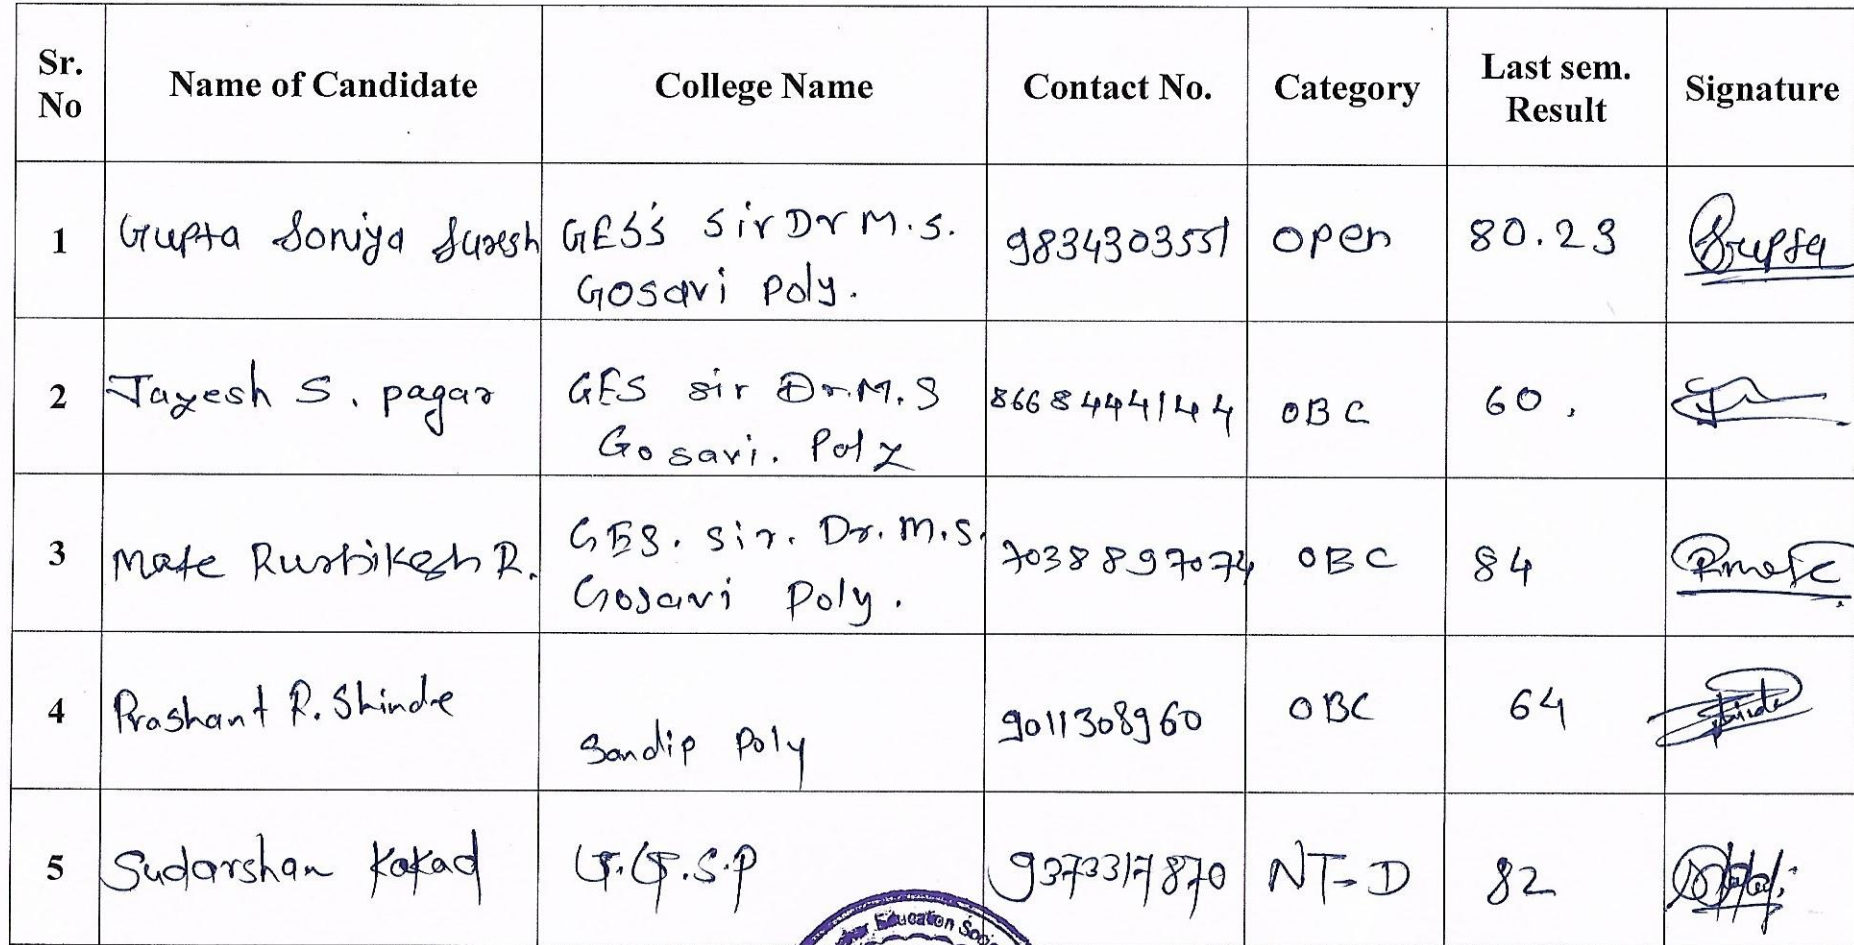 Sr. No | Name of Candidate | College Name | Contact No. | Category | Last sem. Result | Signature
1 | Gupta Soniya Suresh | GES's Sir Dr M.S. Gosavi Poly. | 9834303551 | open | 80.23 | Gupta
2 | Jayesh S. pagar | GES sir Dr.M.S Gosavi. Poly | 8668444144 | OBC | 60.
3 | Mate Rushikesh R. | GES. Sir. Dr. M.S. Gosavi Poly. | 7038897074 | OBC | 84 | Rmate
4 | Prashant R. Shinde | Sandip Poly | 9011308960 | OBC | 64
5 | Sudarshan Kakad | G.G.S.P | 9373317870 | NT-D | 82
Education